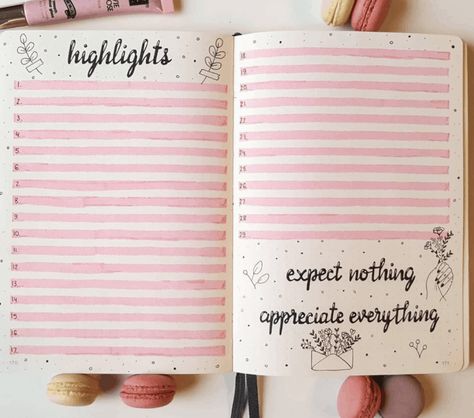 highlights
1.
2.
3.
4.
5.
6.
7.
8.
9.
10.
11.
12.
13.
14.
15.
16.
17.
18.
19.
20.
21.
22.
23.
24.
25.
26.
27.
28.
29.
expect nothing
appreciate everything